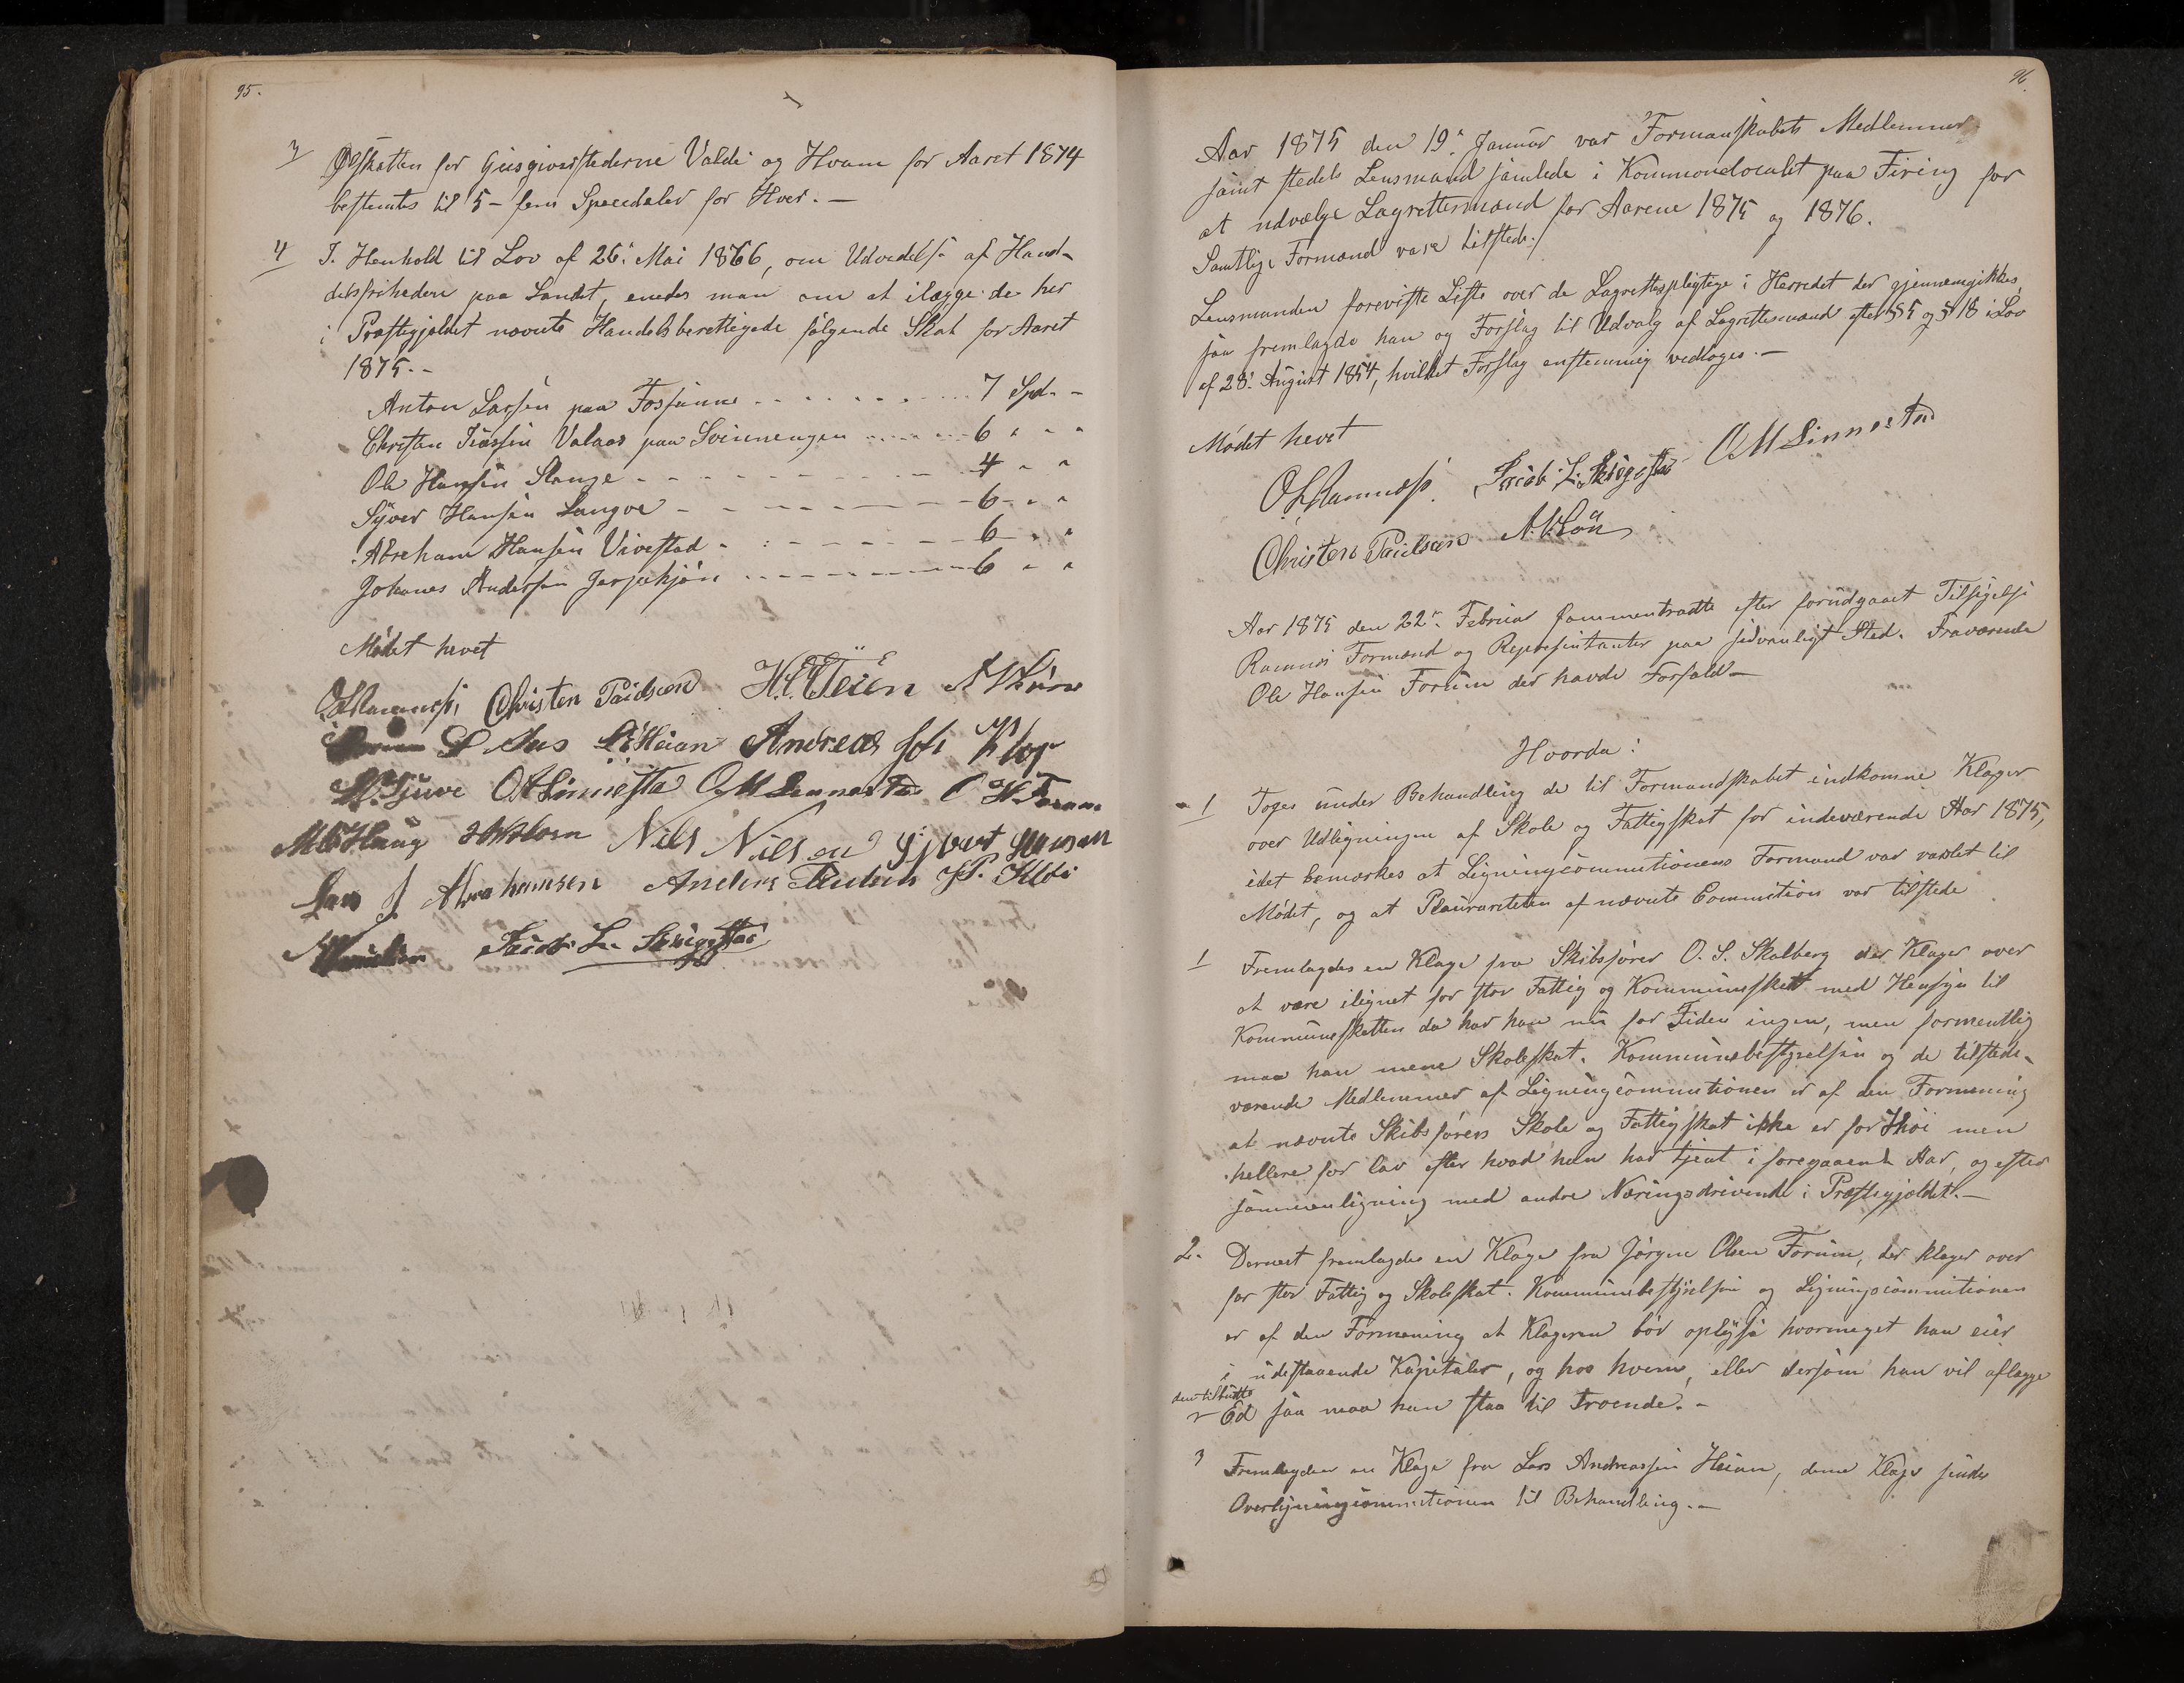 95.
3 Ølskatten for Giæsgiverstederne Valdi og Hvam for Aaret 1874
bestemtes til 5 - fem Speciedaler for Hver. -
4 I. Henhold til Lov af 26. Mai 1866, om Udvidelse af Han-
delsfriheden paa Landet, enedes man om at ilægge de her
i Præstegjældet nævnte Handelsberettigede følgende Skat for Aaret
1875. -
Anton Larsen paa 7 Spd. -
Christen Valaas paa Svinnengen 6 " "
Ole Hansen Stange 4 " "
Syver Hansen Langve 6 " "
Abraham Hansen Vivestad 6 " "
Johanes Andersen 6 " "
Mødet hevet
Christen Paulsen
L A Heian Andreas
O M Linnestad
M O Haug Nils Nilsen
Lars J Abrahamsen Anders
Jacob L. Skriggestad
96.
Aar 1875 den 19. Januar var Formandskabets Medlemmer
samt stedets Lensmand samlede i Kommunelocalet paa Firing for
at udvælge Lagrettesmænd for Aarene 1875 og 1876.
Samtlige Formænd vare tilstede.
Lensmanden foreviste Liste over de Lagrettespligtige i Herredet der gjennemgikkes,
saa fremlagde han og Forslag til Udvalg af Lagrettesmænd efter § 5 og § 18 i Lov
af 28. August 1854, hvilket Forslag enstemmig vedtoges. -
Mødet hevet
Jacob L. Skriggestad O M Linnestad
Christen Paulsen
Aar 1875 den 22. Februar sammentraadte efter forudgaaet Tilsigelse
Ramnes Formænd og Repræsintanter paa sædvanligt Sted. Fraværende
Ole Hansen Forum der havde Forfald -
Hvorda:
1 Toges under Behandling de til Formandskabet indkomne Klager
over Udligningen af Skole og Fattigskat for indeværende Aar 1875,
idet bemærkes at Ligningscommitionens Formand var varslet til
Mødet, og at Plauraritetén af nævnte Commition var tilstede
1 Fremlagdes en Klage fra Skibsfører O. S. Skalberg der Klager over
at være ilignet for stor Fattig og Kommuneskatt med Hensyn til
Kommuneskatten da har han nu for Tiden ingen, men formentlig
maa han mene Skoleskat. Kommunebestyrelsen og de tilstede-
værende Medlemmer af Ligningscommitionen er af den Formening
at nævnte Skibsførers Skole og Fattigskat ikke er for høi men
hellere for lav efter hvad han har tjent i foregaaende Aar, og efter
sammenligning med andre Næringsdrivende i Præstegjældet. -
2. Dernæst fremlagdes en Klage fra Jørgen Olsen Forum, der klager over
for stor Fattig og Skoleskat. Kommunebestyrelsen og Ligningscommitionen
er af den Formening at Klageren bør oplyse hvormeget han eier
i udestaaende Kapitaler, og hos hvem, eller dersom han vil aflægge
den tilbudte
Ed saa maa han staa til Troende. -
3 Fremlagdes en Klage fra Lars Andreassen Heian, denne Klage sendes
Overligningscommitionen til Behandling. -